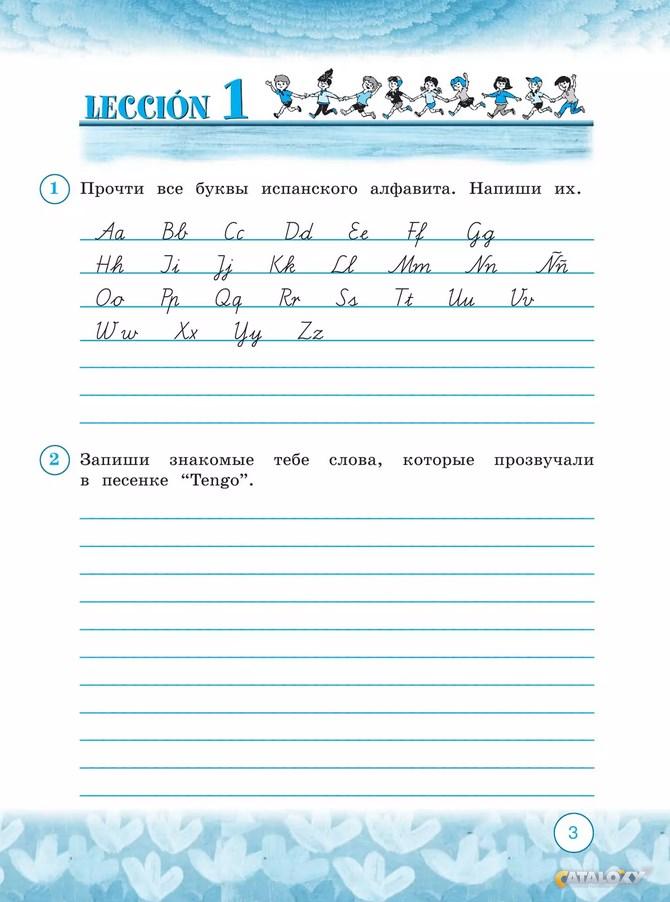 LECCIÓN 1
1 Прочти все буквы испанского алфавита. Напиши их.
Aa Bb Cc Dd Ee Ff Gg
Hh Ii Jj Kk Ll Mm Nn Ññ
Oo Pp Qq Rr Ss Tt Uu Vv
Ww Xx Yy Zz
2 Запиши знакомые тебе слова, которые прозвучали
в песенке “Tengo”.
3
CATALOXY